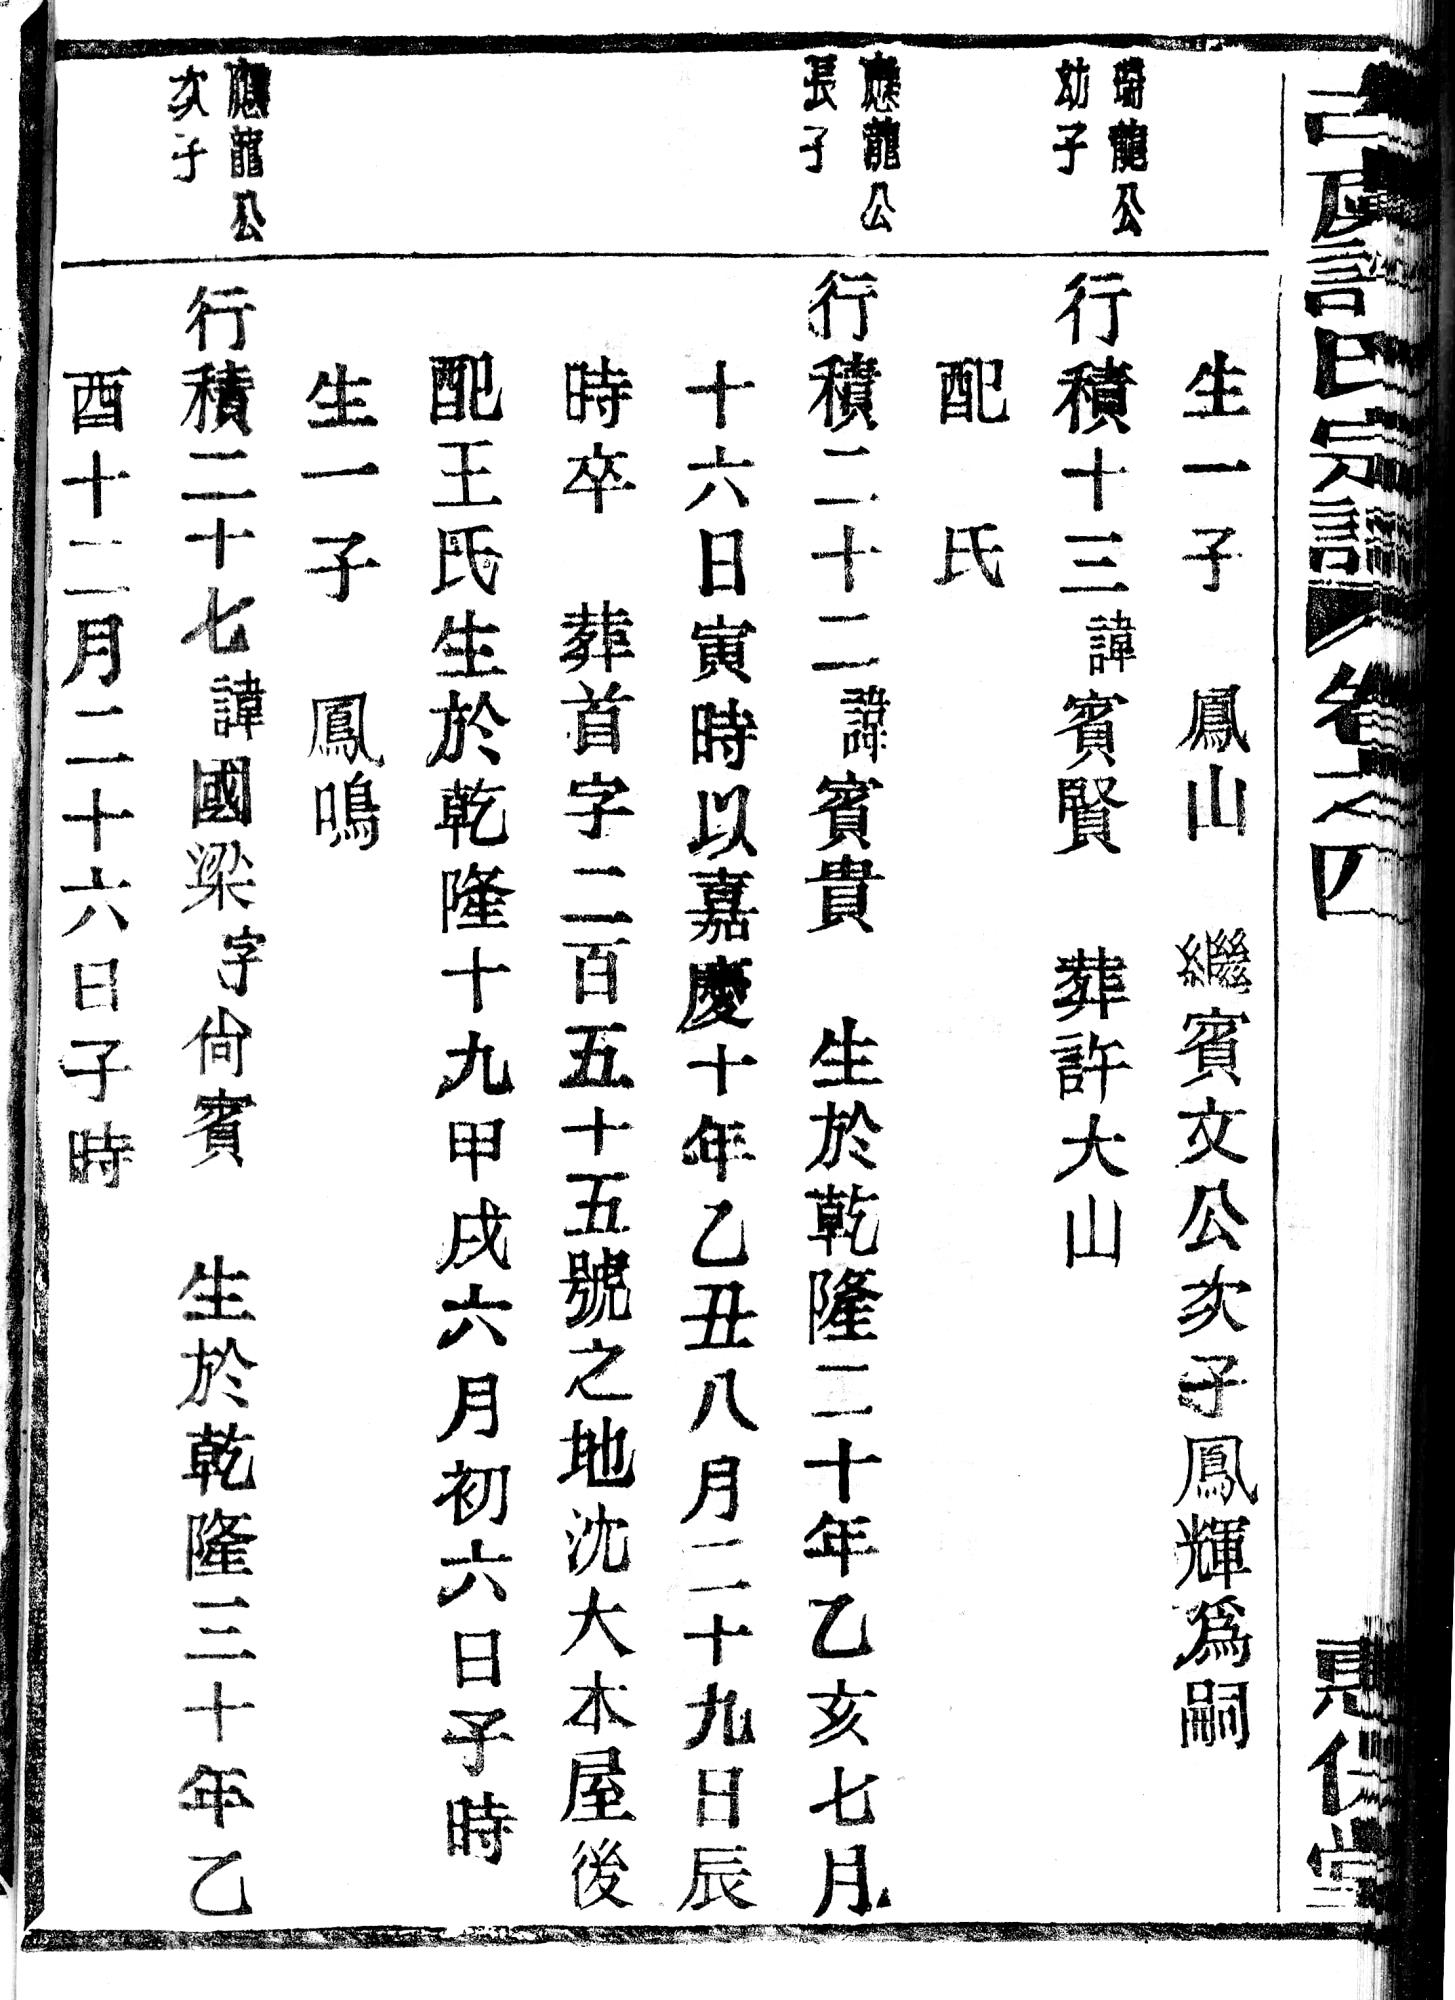 古虞許氏宗譜 卷之四 堂
生一子 鳳山 繼賓文公次子鳳輝爲嗣
龍公
幼子
行積十三諱賓賢 葬許大山
配 氏
應龍公
長子
行積二十二諱賓貴 生於乾隆二十年乙亥七月
十六日寅時以嘉慶十年乙丑八月二十九日辰
時卒 葬首字二百五十五號之地沈大木屋後
配王氏生於乾隆十九甲戌六月初六日子時
生一子 鳳鳴
應龍公
次子
行積二十七諱國梁字尙賓 生於乾隆三十年乙
酉十二月二十六日子時